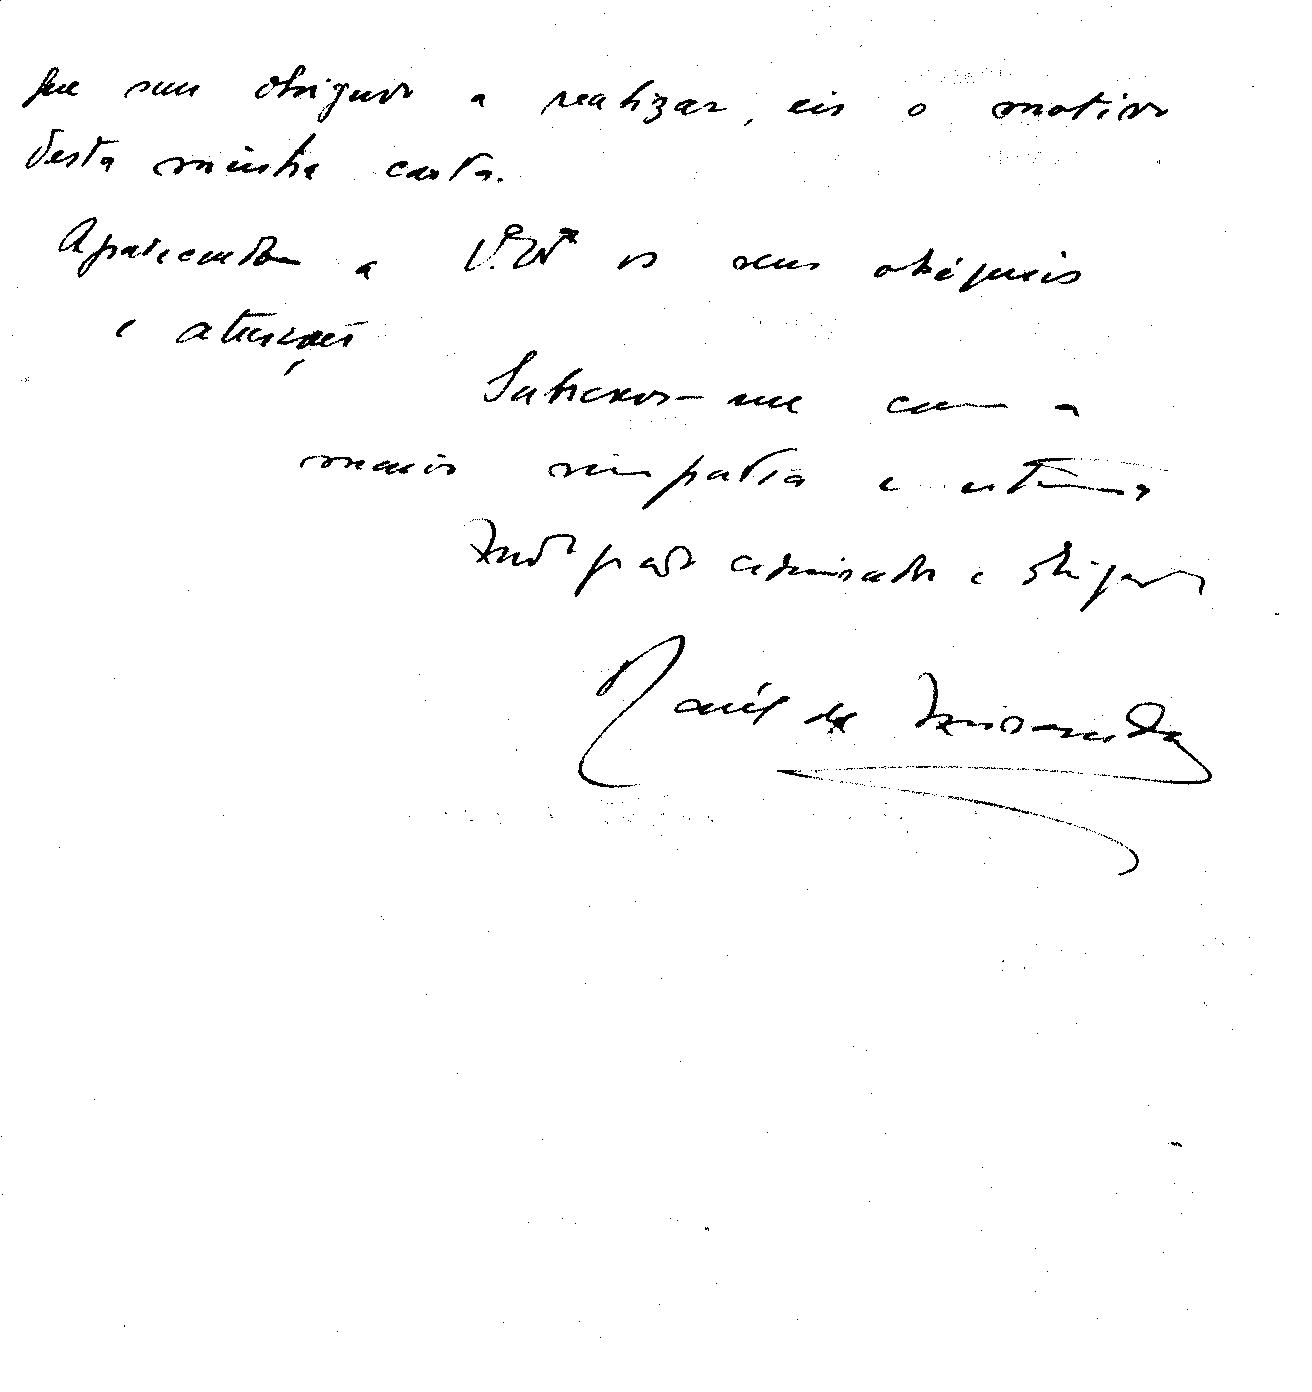 que sou obrigado a realizar, eis o motivo
desta minha carta.
Agradecendo a V. Exª os seus obséquios
e atenções
Subscrevo-me com a
maior simpatia e estima
Mtº grato admirador e obrigado
Raúl de Miranda